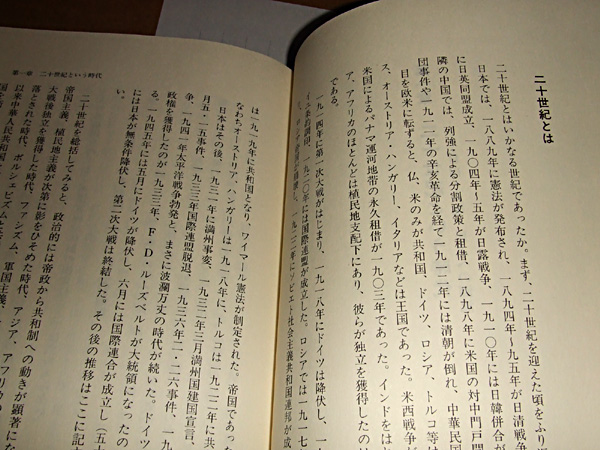 二十世紀とは
二十世紀とはいかなる世紀であったか。まず、二十世紀を迎えた頃をふり
日本では、一八八九年に憲法が発布され、一八九四年〜九五年が日清戦争、
に日英同盟成立、一九〇四年〜五年が日露戦争、一九一〇年には日韓併合が
隣の中国では、列強による分割政策と租借、一八九八年に米国の対中門戸開
団事件や一九一一年の辛亥革命を経て一九一二年には清朝が倒れ、中華民国
目を欧米に転ずると、仏、米のみが共和国、ドイツ、ロシア、トルコ等は
ス、オーストリア・ハンガリー、イタリアなどは王国であった。米西戦争が
米国によるパナマ運河地帯の永久租借が一九〇三年であった。インドをはじ
ア、アフリカのほとんどは植民地支配下にあり、彼らが独立を獲得したのは
である。
一九一四年に第一次大戦がはじまり、一九一八年にドイツは降伏し、一
一九二〇年には国際連盟が成立した。ロシアでは一九一七
一九二二年にソビエト社会主義共和国連邦が成
第一章 二十世紀という時代
は一九一九年に共和国となり、ワイマール憲法が制定された。帝国であった
なわちオーストリア、ハンガリーは一九一八年に、トルコは一九二二年に共
日本はその後、一九三一年に満州事変、一九三二年三月満州国建国宣言、
月五・一五事件、一九三三年国際連盟脱退、一九三六年二・二六事件、一九
争、一九四一年太平洋戦争勃発と、まさに波瀾万丈の時代が続いた。ドイツ
政権を獲得したのが一九三三年、F・D・ルーズベルトが大統領になったの
る。一九四五年には五月にドイツが降伏し、六月には国際連合が成立し（五十
には日本が無条件降伏し、第二次大戦は終結した。その後の推移はここに記
い。
二十世紀を総括してみると、政治的には帝政から共和制への動きが顕著にな
帝国主義、植民地主義が次第に影をひそめた時代、アジア、アフリカの
大戦後独立を獲得した時代、ファシズム、軍国主義、
落とされた時代、ボルシェビズムによ
以来中華人民共和国